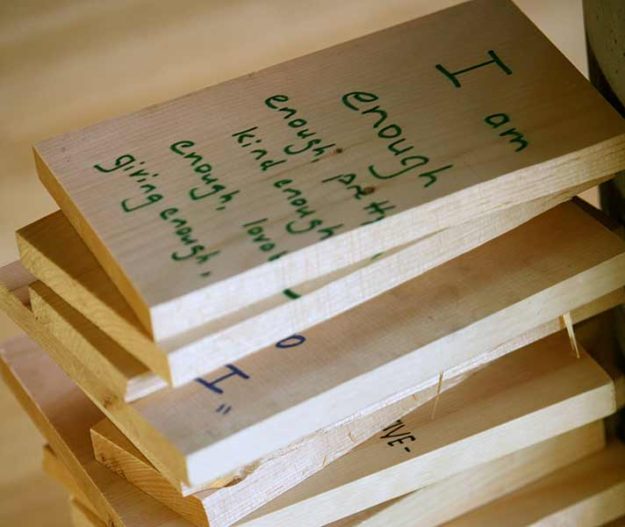 I am
enough
enough, prett
kind enough
enough, lova
giving enough,
"I
IVE-